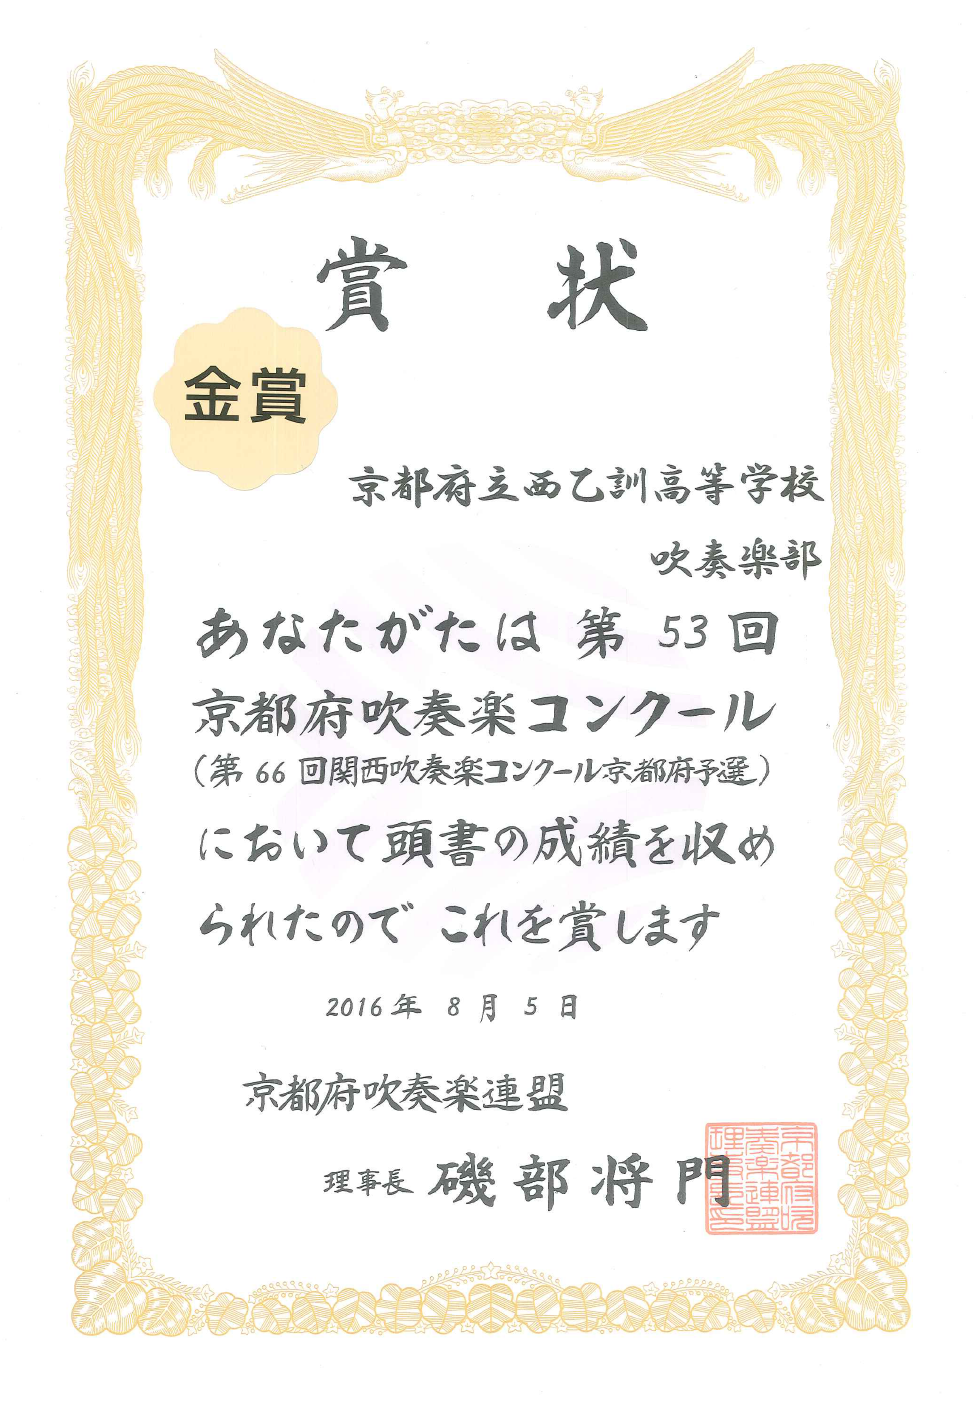 賞状
金賞
京都府立西乙訓高等学校
吹奏楽部
あなたがたは 第 53 回
京都府吹奏楽コンクール
（第 66 回関西吹奏楽コンクール京都府予選）
において頭書の成績を収め
られたので これを賞します
2016年 8 月 5 日
京都府吹奏楽連盟
理事長 磯部将門
京都府吹
奏楽連盟
理事長印